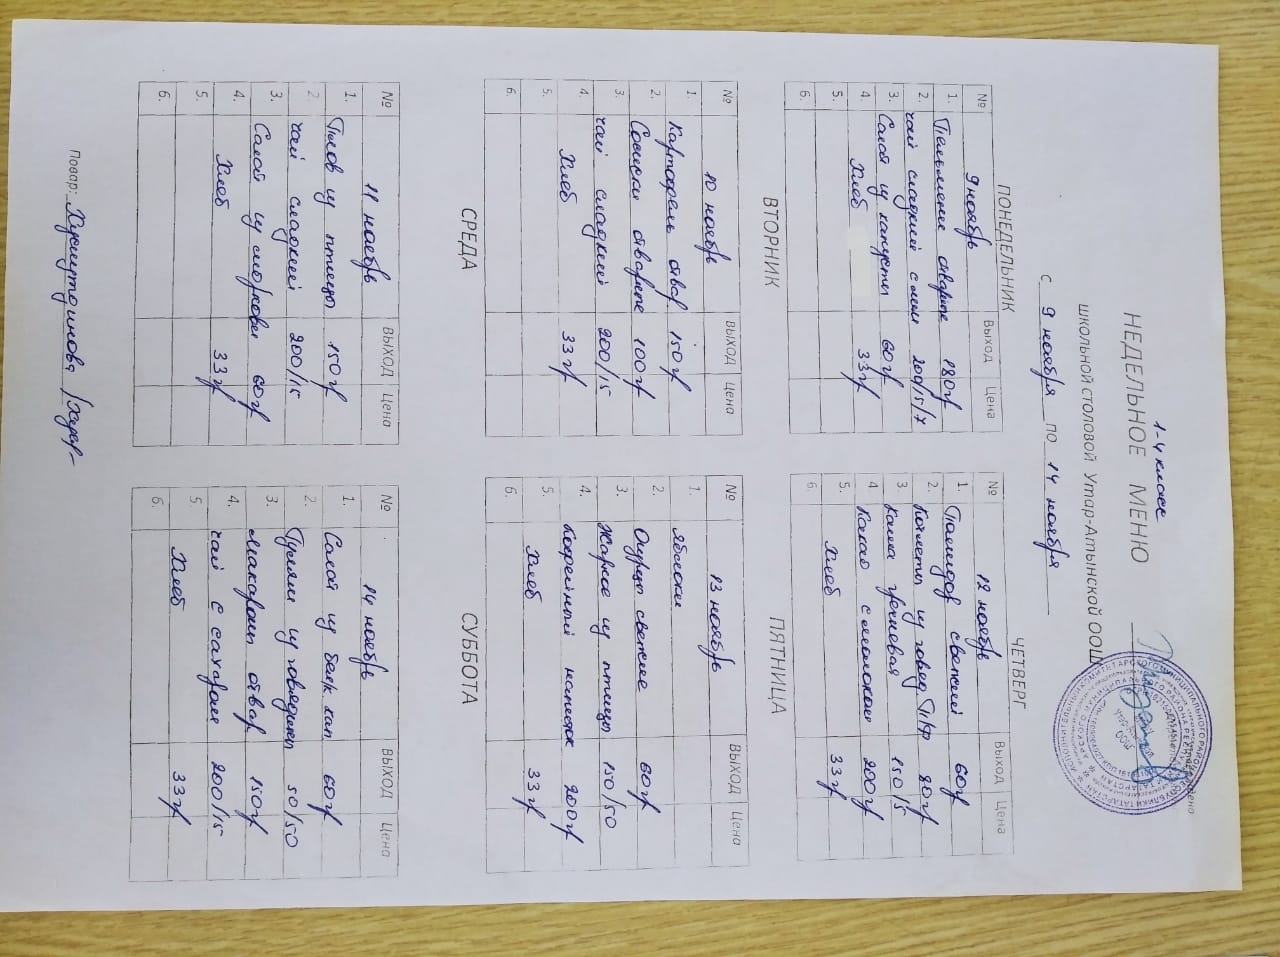 1-4 класс
НЕДЕЛЬНОЕ МЕНЮ
ШКОЛЬНОЙ СТОЛОВОЙ Утар-Атынской ООШ
с 9 ноября по 14 ноября
ПОНЕДЕЛЬНИК
№ 9 ноябрь Выход Цена
1. Пельмени отварные 180 гр
2. чай сладкий с лим 200/5/7
3. Салат из капусты 60 гр
4. Хлеб 33 гр
5.
6.
ВТОРНИК
№ 10 ноябрь ВЫХОД Цена
1. Картофель отвар 150 гр
2. Сосиски отварные 100 гр
3. чай сладкий 200/15
4. Хлеб 33 гр
5.
6.
СРЕДА
№ 11 ноябрь ВЫХОД Цена
1. Плов из птицы 150 гр
2. чай сладкий 200/15
3. Салат из моркови 60 гр
4. Хлеб 33 гр
5.
6.
ЧЕТВЕРГ
№ 12 ноябрь Выход Цена
1. Помидор свежий 60 гр
2. Котлеты из говяд 80 гр
3. Каша гречневая 150/5
4. Какао с молоком 200 гр
5. Хлеб 33 гр
6.
ПЯТНИЦА
№ 13 ноябрь ВЫХОД Цена
1. Яблоки
2. Огурцы свежие 60 гр
3. Жаркое из птицы 150/50
4. Кофейный напиток 200 гр
5. Хлеб 33 гр
6.
СУББОТА
№ 14 ноябрь ВЫХОД Цена
1. Салат из белк кап 60 гр
2. Гуляш из говядины 50/50
3. Макароны отвар 150 гр
4. чай с сахаром 200/15
5. Хлеб 33 гр
6.
Повар: